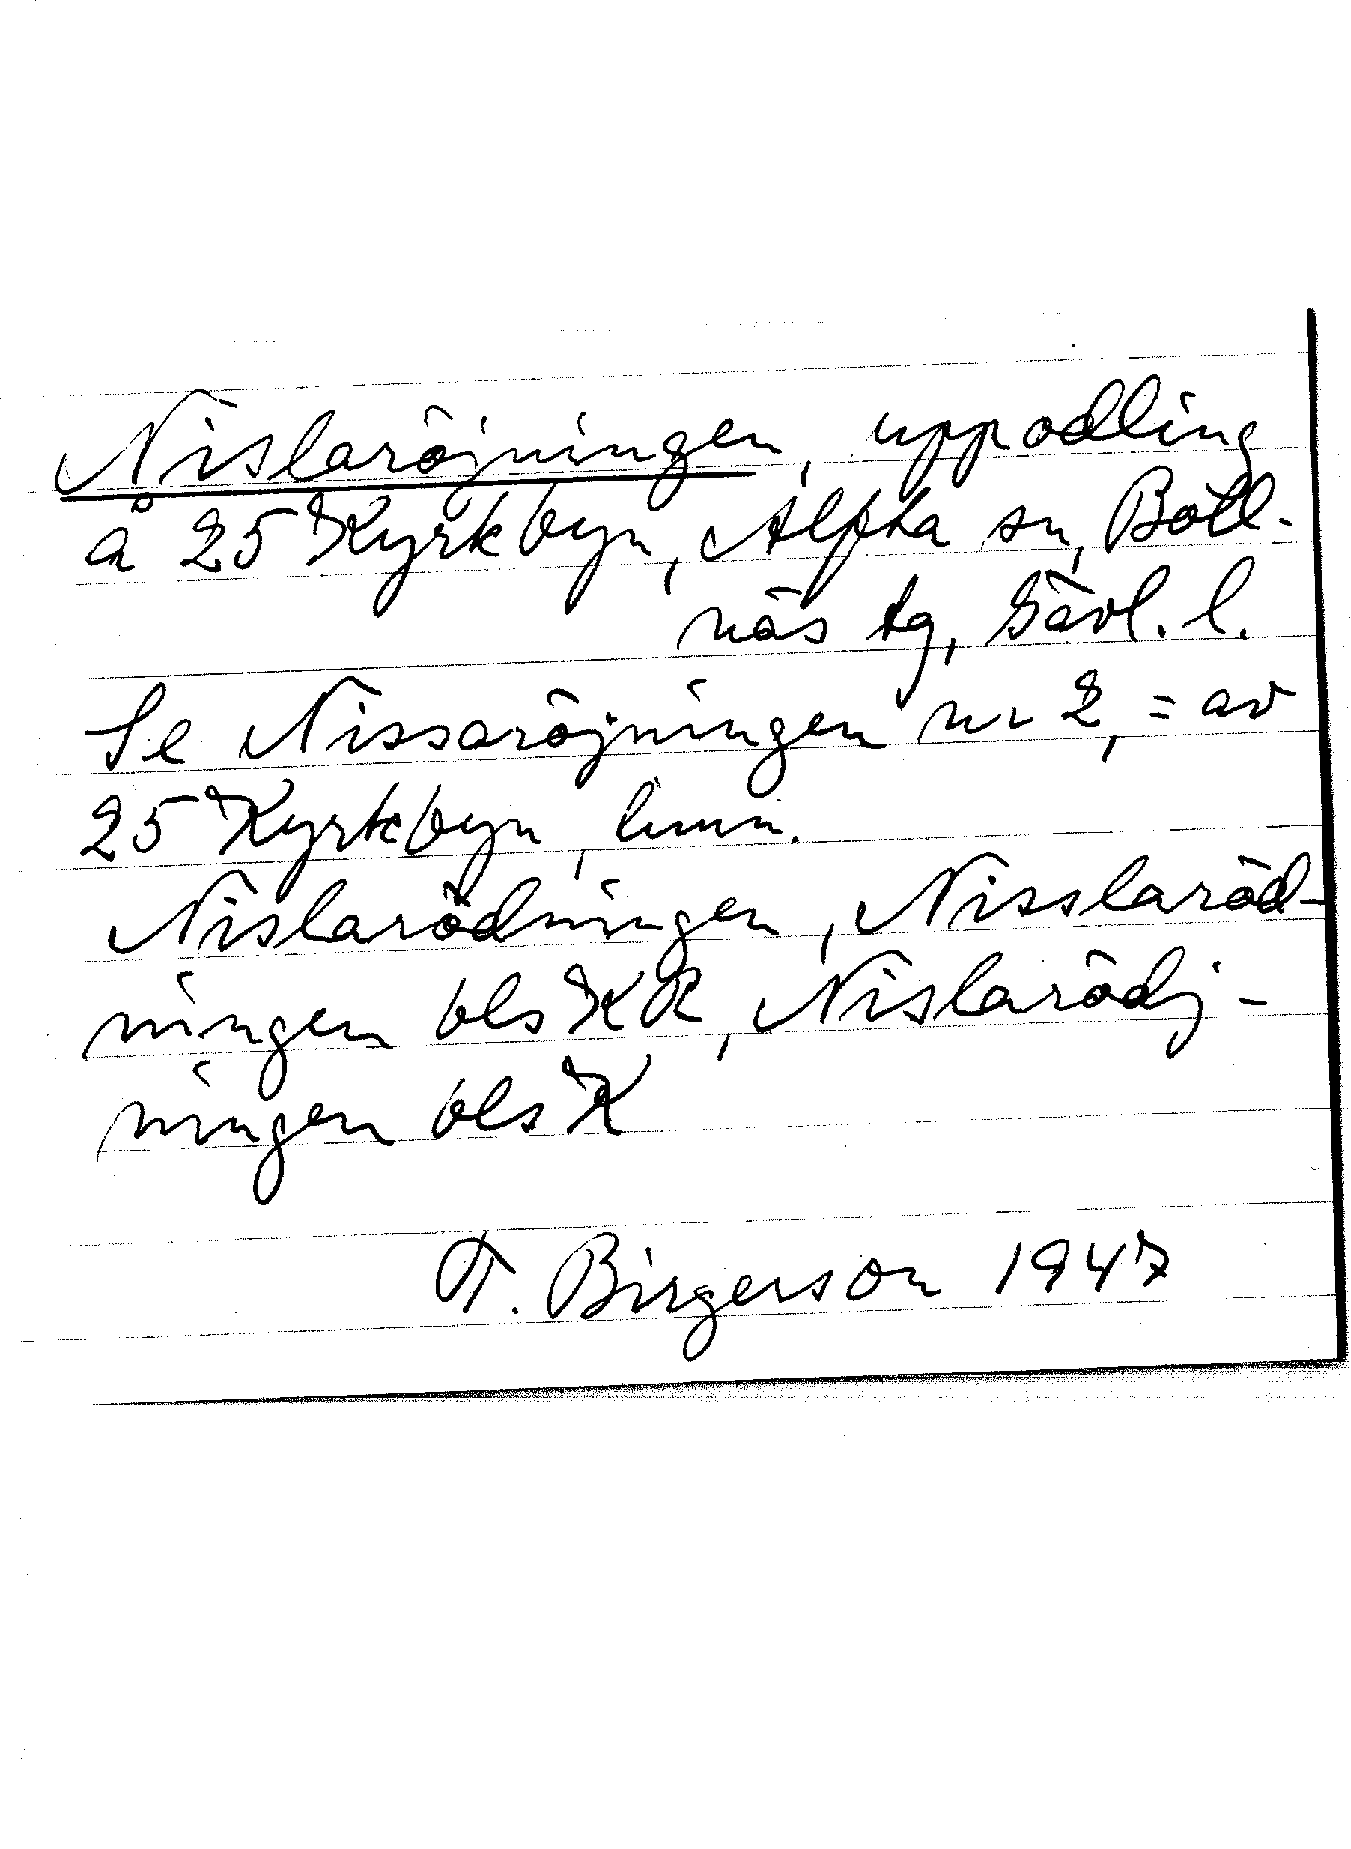 Nislaröjningen, uppodling
å 25 Kyrkbyn, Alfta sn, Boll-
näs tg, Gävl. l.
Se Nissaröjningen nr 2, = av
25 Kyrkbyn, hmn.
Nislarödningen, Nisslaröd-
ningen bls KR, Nislarödj-
ningen bls K
F. Birgerson 1947